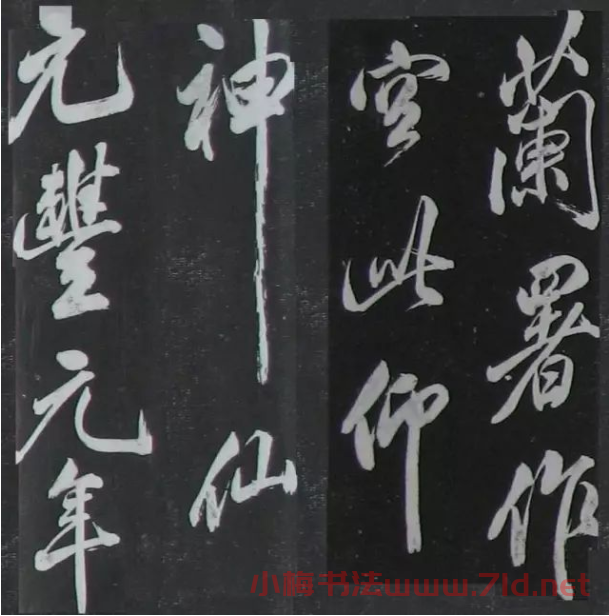 蘭署作
官此仰
神仙
元豐元年
小梅书法www.7ld.net